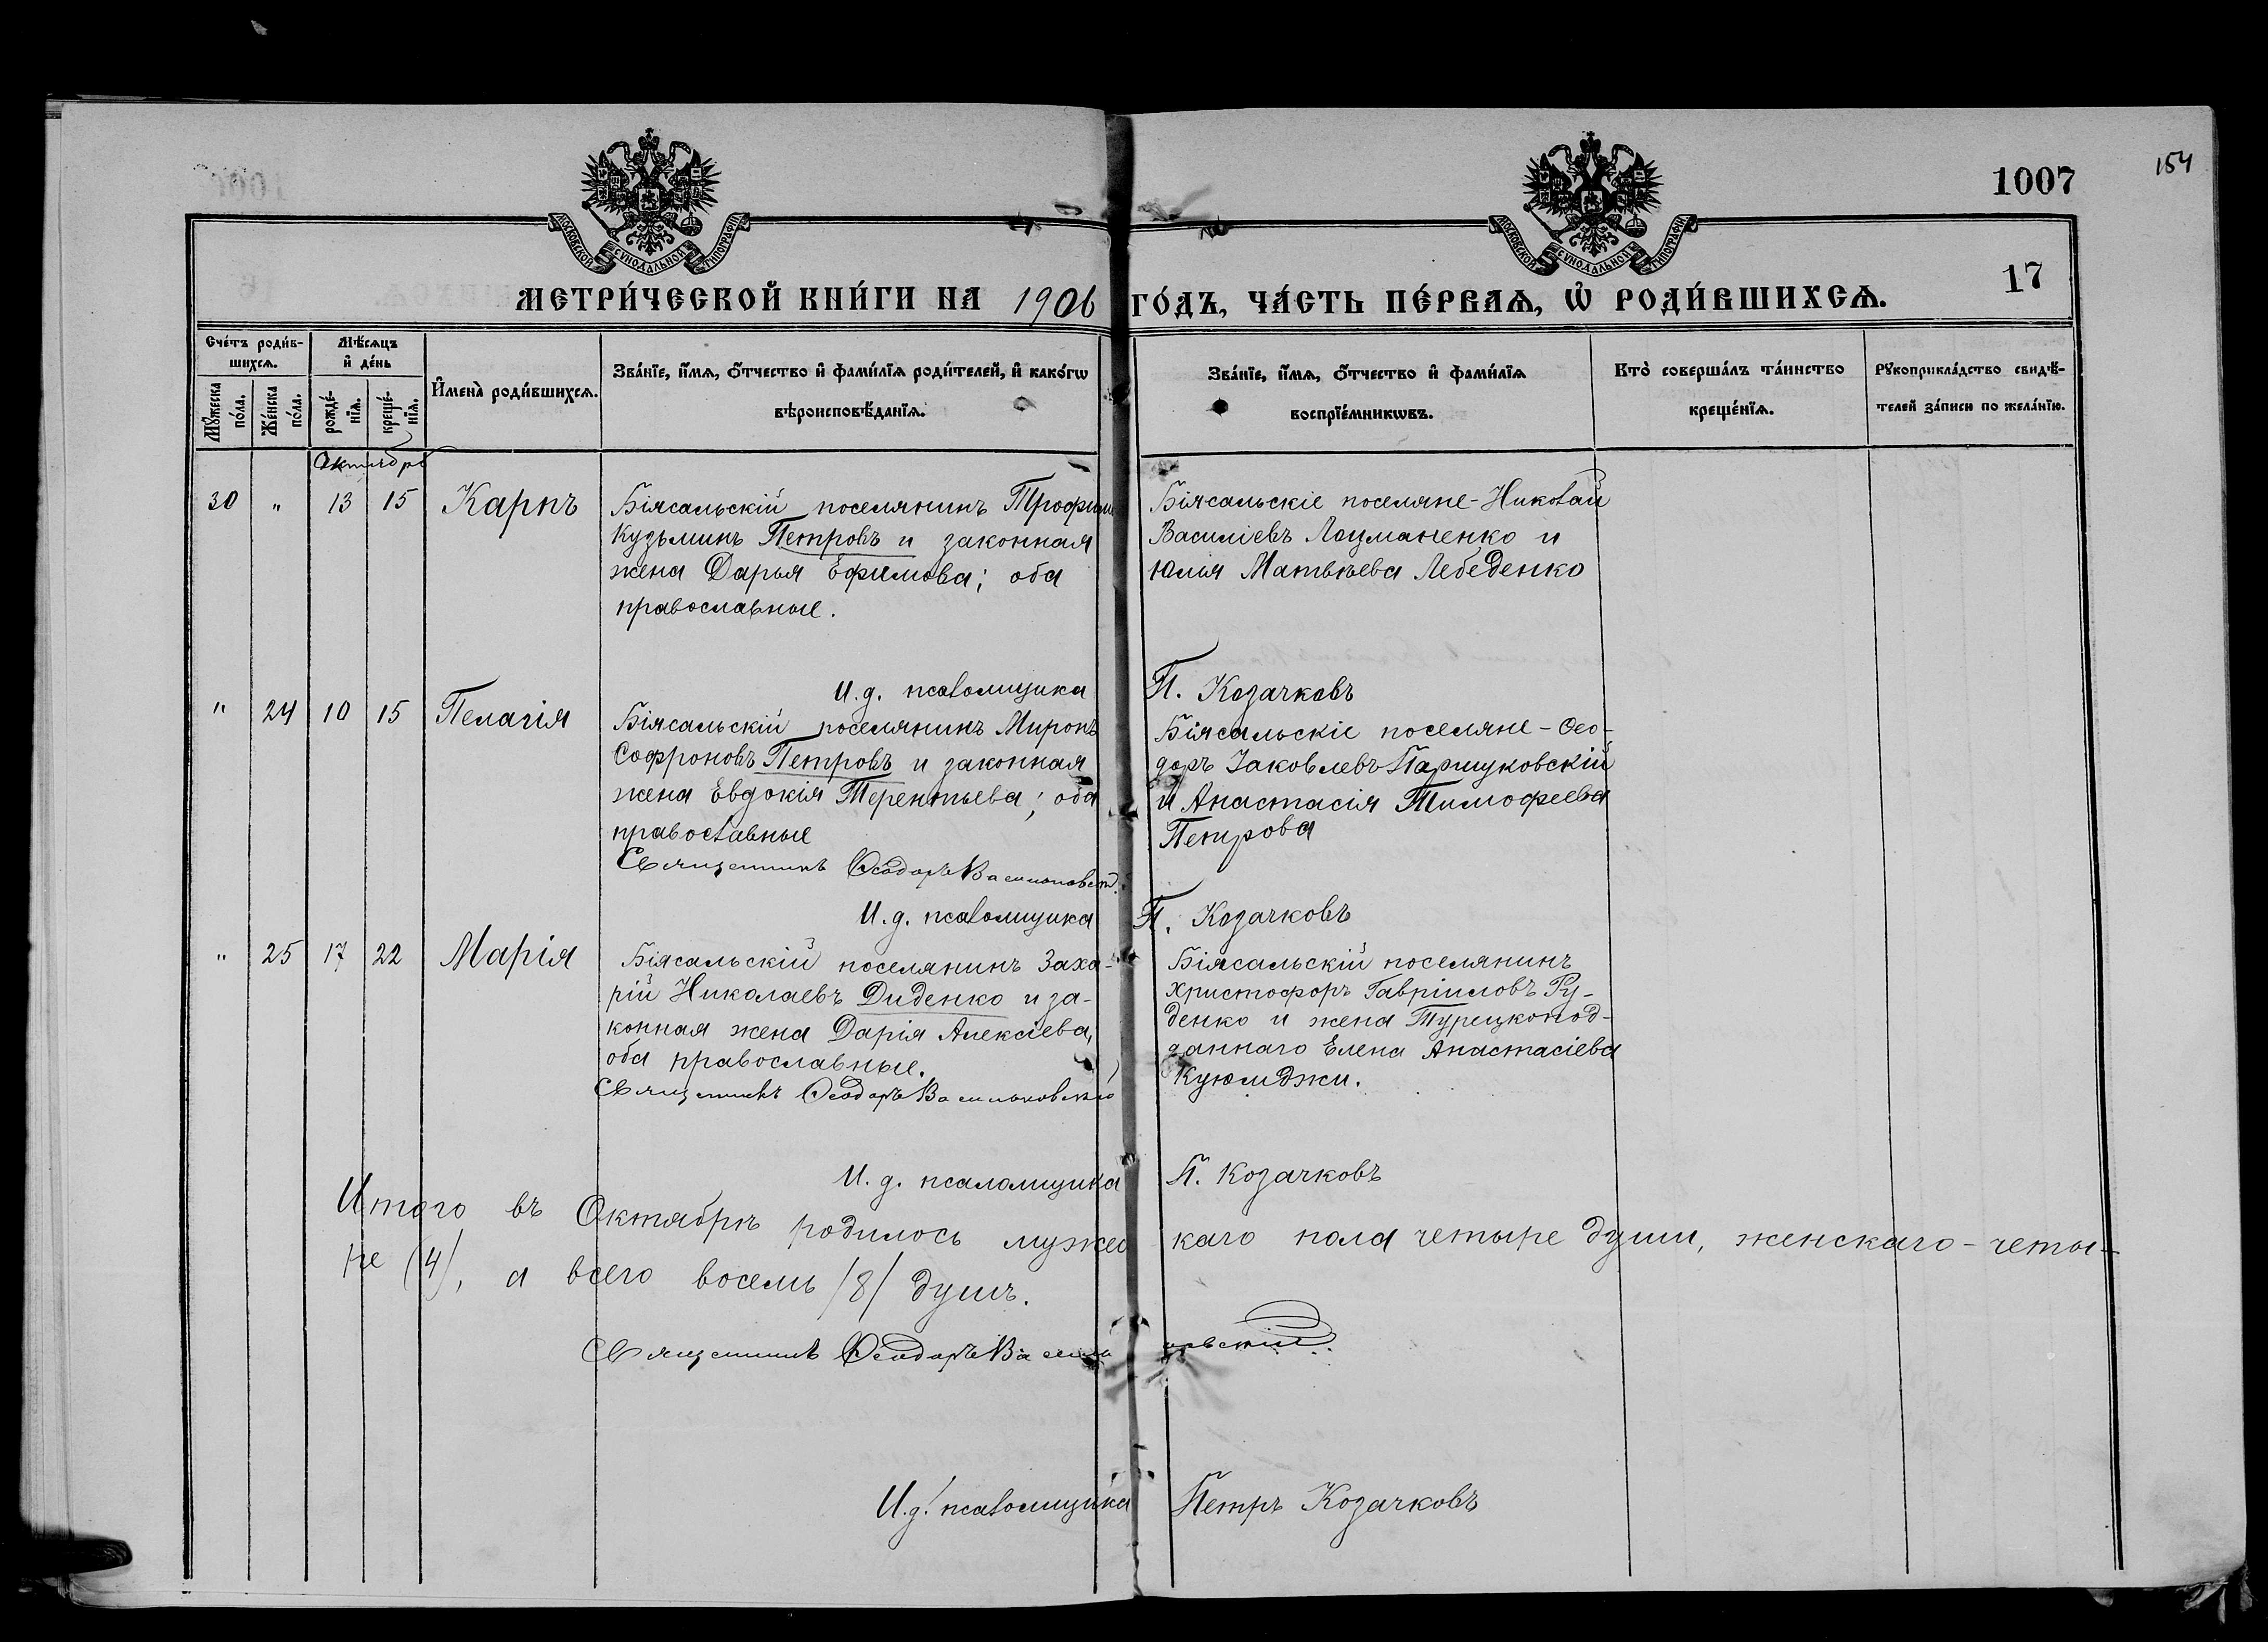 1007
154
17
МОСКОВСКОЙ СУНОДАЛЬНОЙ ТИПОГРАФІИ
МОСКОВСКОЙ СУНОДАЛЬНОЙ ТИПОГРАФІИ
МЕТРИ́ЧЕСКОЙ КНИ́ГИ НА 1906 ГО́ДЪ, ЧА́СТЬ ПЕ́РВАѦ, Ѡ҆ РОДИ́ВШИХСѦ.
Сче́тъ роди́в-
шихсѧ.
Мꙋжеска по́ла.
Же́нска по́ла.
Мѣ́сѧцъ
и҆ де́нь
рожде́-
нїѧ.
креще́-
нїѧ.
И҆мена̀ роди́вшихсѧ.
Зва́нїе, и҆́мѧ, ѻ҆́тчество и҆ фами́лїѧ роди́телей, и҆ како́гѡ
вѣроисповѣ́данїѧ.
Зва́нїе, и҆́мѧ, ѻ҆́тчество и҆ фами́лїѧ
воспрїе́мникѡвъ.
Кто̀ соверша́лъ та́инство
креще́нїѧ.
Рꙋкоприкла́дство свидѣ́-
телей за́писи по жела́нїю.
Октябрь
30 " 13 15 Карпъ
Біясальскій поселянинъ Трофимъ
Кузьминъ Петровъ и законная
жена Дарья Ефимова; оба
православные.
Біясальскіе поселяне - Николай
Василіевъ Лацманенко и
Юлья Матвѣева Лебеденко
И. д. псаломщика П. Козачковъ
" 24 10 15 Пелагія
Біясальскій поселянинъ Миронъ
Софроновъ Петровъ и законная
жена Евдокія Терентьева; оба
православные
Біясальскіе поселяне - Ѳео-
доръ Іаковлевъ Паршуковскій
и Анастасія Тимофеева
Петрова
Священникъ Ѳеодоръ Васильковскій
И. д. псаломщика П. Козачковъ
" 25 17 22 Марія
Біясальскій поселянинъ Заха-
рій Николаевъ Диденко и за-
конная жена Дарія Алексіева,
оба православные.
Біясальскій поселянинъ
Христофоръ Гавріиловъ Ру-
денко и жена Турецкопод-
даннаго Елена Анастасіева
Куюмджи.
Священникъ Ѳеодоръ Васильковскій
И. д. псаломщика П. Козачковъ
Итого въ Октябрѣ родилось мужескаго пола четыре души, женскаго - четы-
ре (4), а всего восемь /8/ душъ.
Священникъ Ѳеодоръ Васильковскій
И. д. псаломщика Петръ Козачковъ